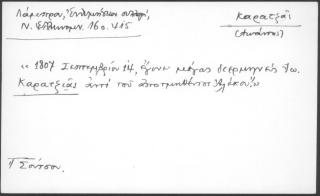 Λάμπρου, Ἐνθυμήσεων συλλογή,
Ν. Ἑλληνομν. 16 σ. 415
Καρατζᾶς
(Ἰωάννης)
« 1807 Σεπτεμβρίου 14, ἔγινε μέγας διερμηνεὺς Ἰω.
Καρατζιᾶς ἀντὶ τοῦ ἀποτμηθέντος Ἀλέκου
Σούτσου.